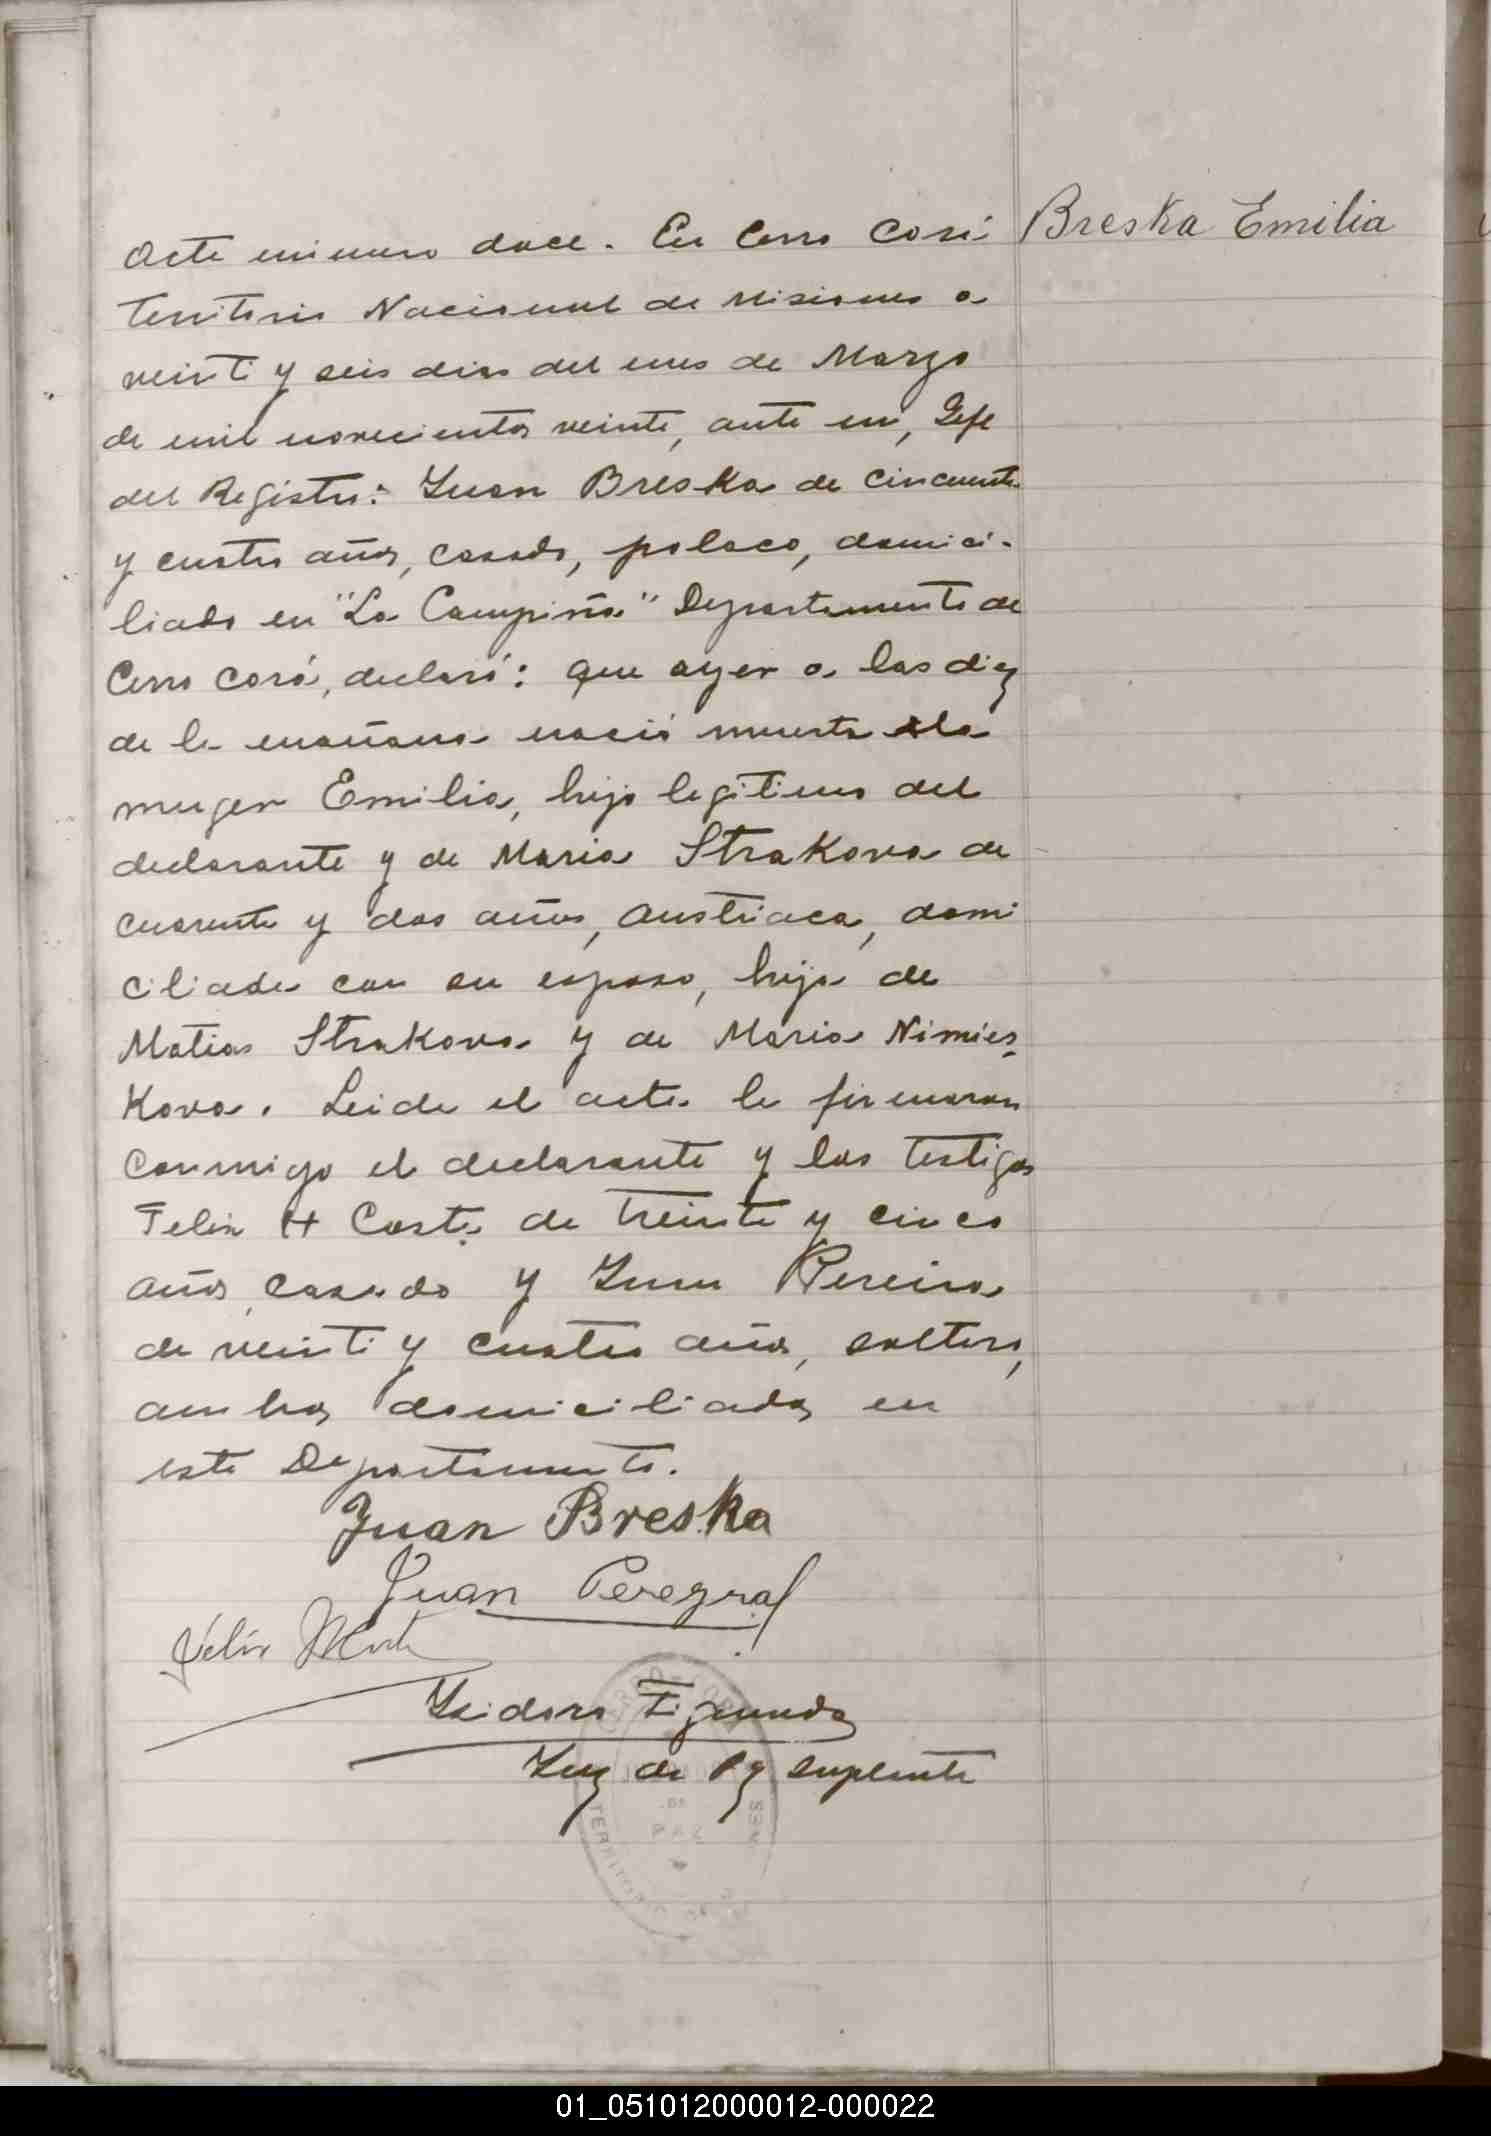 Acta número doce. En Cerro Corá
Breska Emilia
Territorio Nacional de Misiones a
veinti y seis dias del mes de Marzo
de mil novecientos veinte, ante mi, Gefe
del Registro: Juan Breska de cincuenta
y cuatro años, casado, polaco, domici-
liado en "La Campiña" Departamento de
Cerro Corá, declaró: que ayer a las diez
de la mañana nació muerta la
muger Emilia, hija legitima del
declarante y de Maria Strakova de
cuarenta y dos años, austriaca, domi
ciliada con su esposo, hija de
Matias Strakova y de Maria Nimies-
Kova. Leida el acta la firmaron
conmigo el declarante y los testigos
Felix H Costa de treinta y cinco
años, casado y Juan Pereira
de veinti y cuatro años, soltero,
ambos domiciliados en
este Departamento.
Juan Breska
Juan
Félix
Isidoro
Juez de Paz suplente
TERRITORIO
01_051012000012-000022